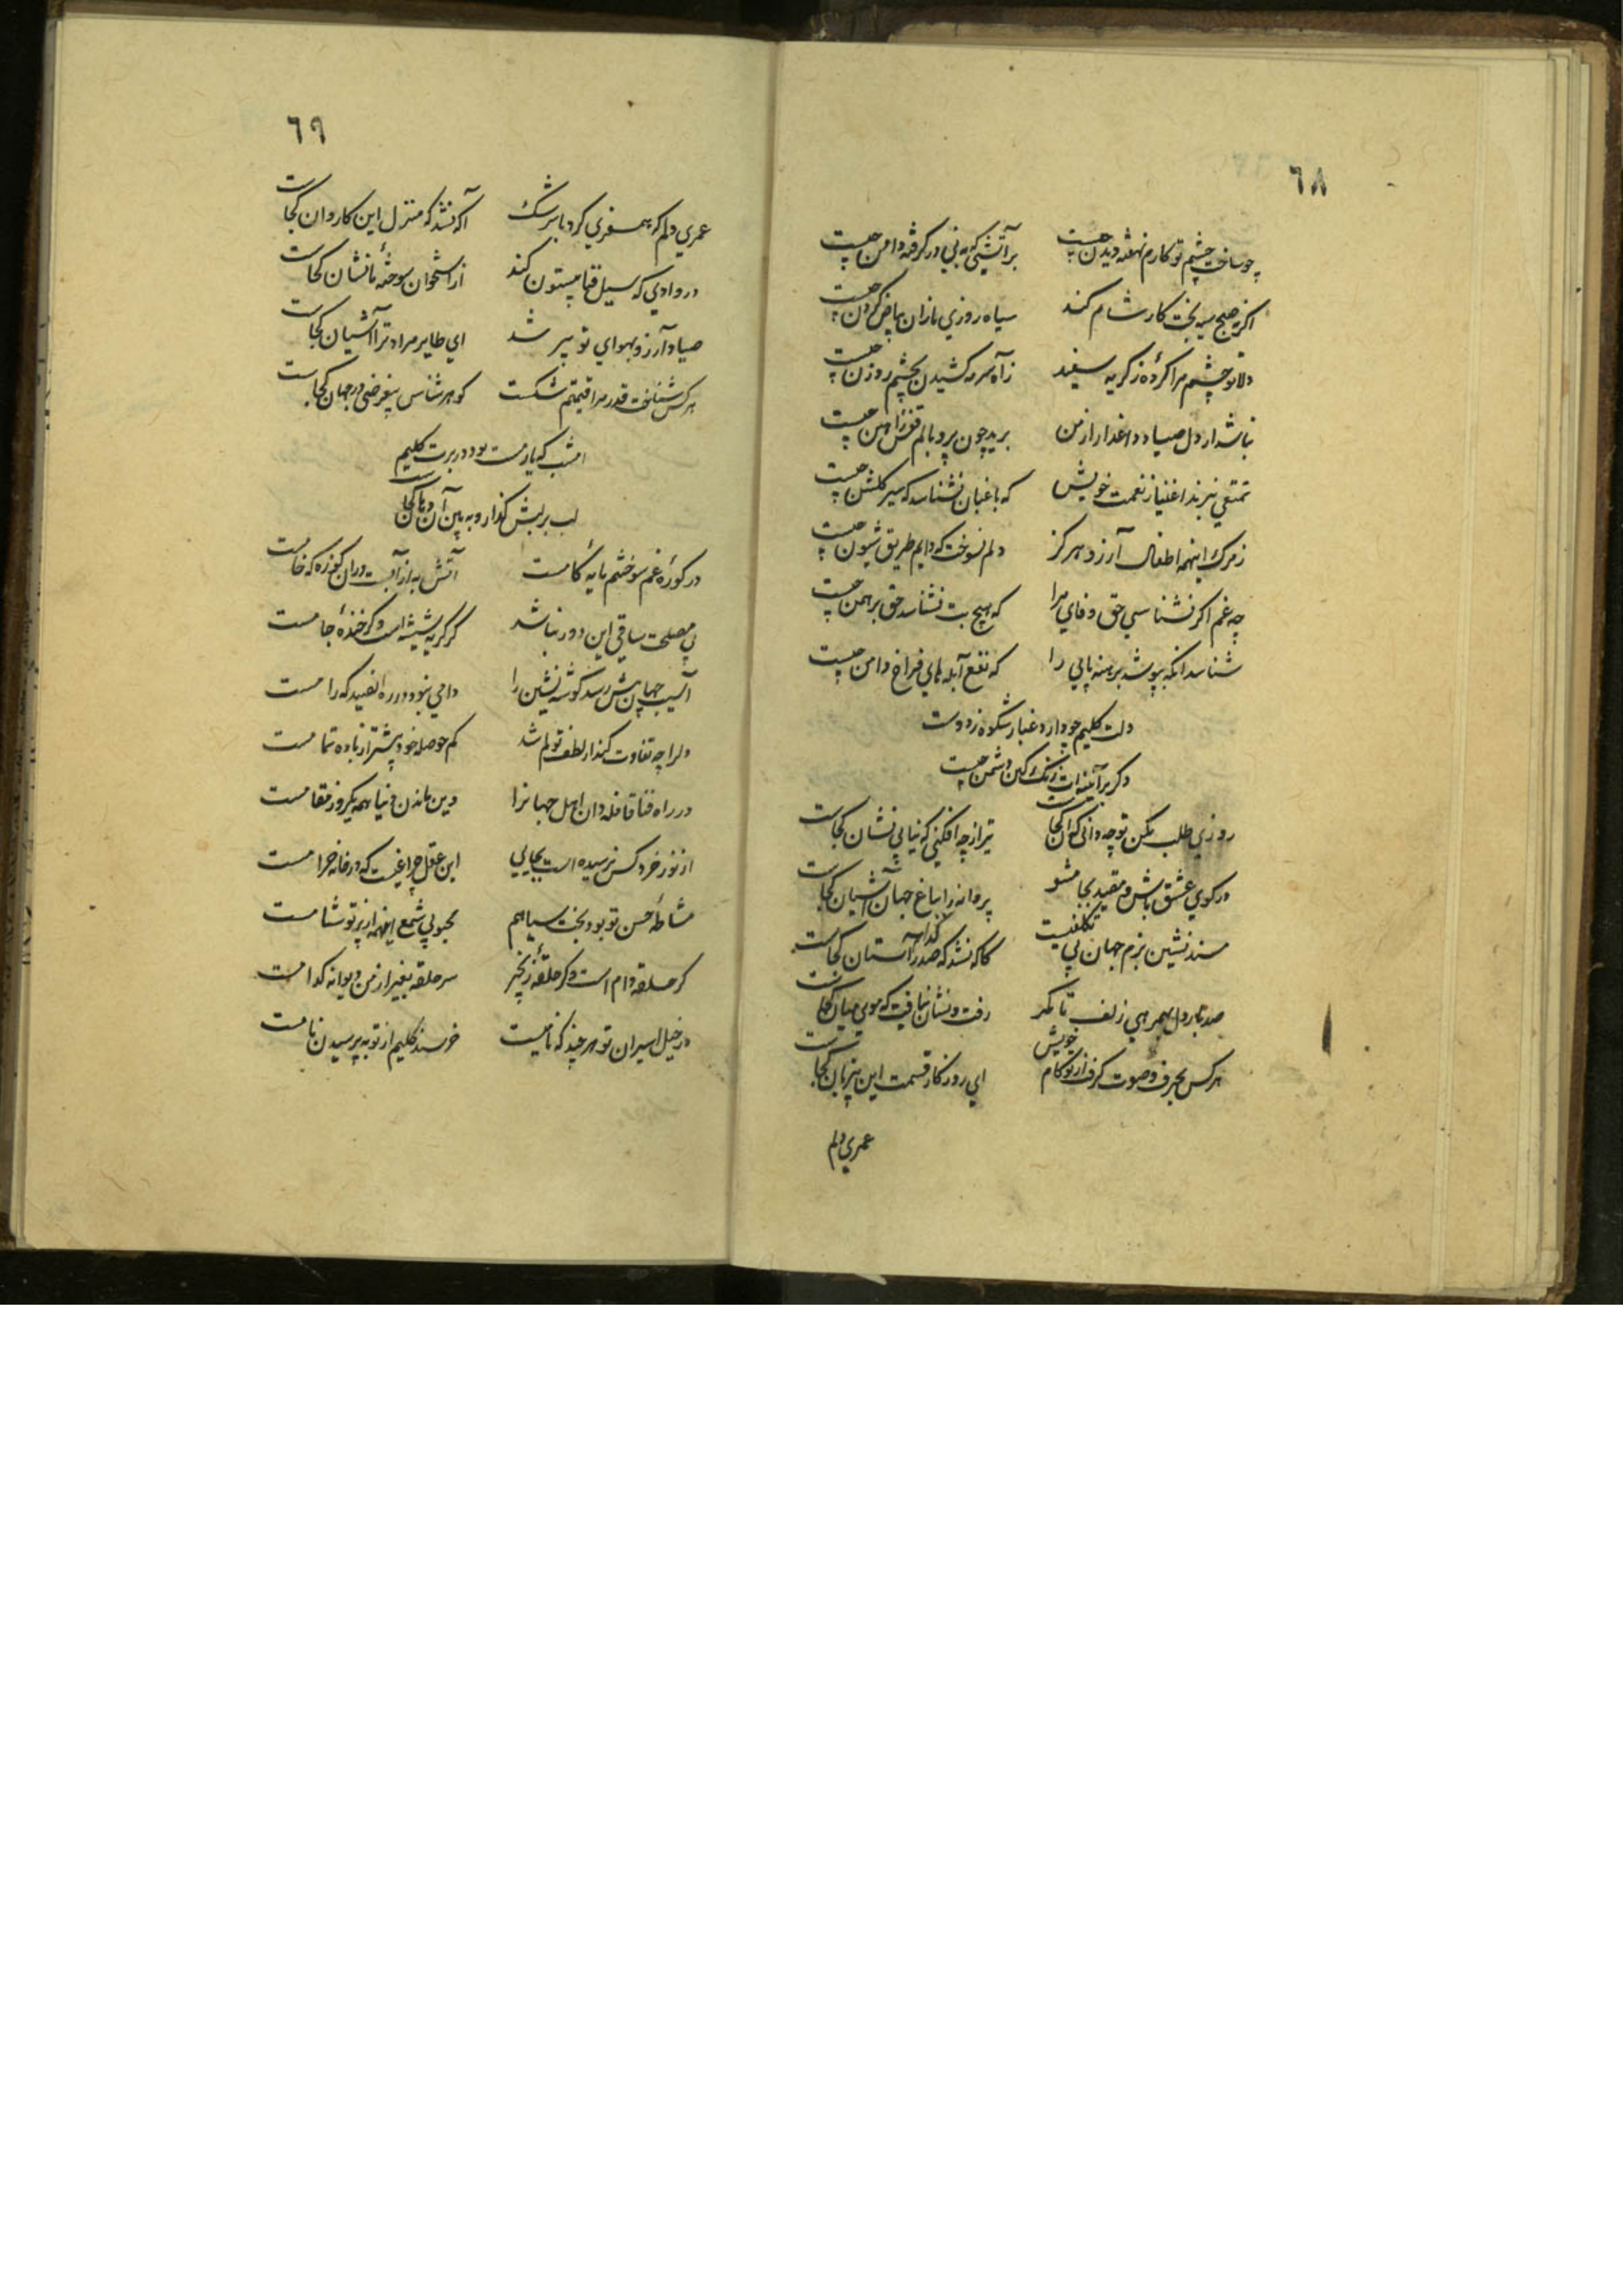 ٦٨
چو ساخت چشم تو کارم نهفته دیدن چیست
بر آتشی که به نی در گرفته دامن چیست
اگر نه صبح سیه بخت کار شام کند
سیاه روزی ما زان بیاض گردن چیست
دلا تو چشم مرا کردهٔ ز گریه سفید
ز آه سرمه کشیدن بچشم روزن چیست
نباشد ار دل صیاد داغدار از من
برید چون پر و بالم قفس ز آهن چیست
تمتعی نبرند اغنیا ز نعمت خویش
که باغبان نشناسد که سیر گلشن چیست
ز مرگ اینهمه اطفال آرزو هرگز
دلم نسوخت که دانم طریق شیون چیست
چه غم اگر نشناسی حق وفای مرا
که هیچ بت نشناسد حق برهمن چیست
شناسد انکه بپوشد برهنه پایی را
که نفع آبله های فراخ دامن چیست
دلت کلیم چو دارد غبار شکوه ز دوست
دگر بر آینه ات زنگ کین دشمن چیست
روزی طلب مکن تو چه دانی که آن کجاست
تیر از چه افکنی که نیابی نشان کجاست
در کوی عشق باش و مقید بجا مشو
پروانه را بباغ جهان آشیان کجاست
مسند نشین بزم جهان بی تکلفیست
کاگه نشد که صدر کدام آستان کجاست
صد تاب دل بهمرهی زلف تا کمر
رفت و نشان نیافت که موی میان کجاست
هرکس بحرف و صوت گرفت از تو کام خویش
ای روزگار قسمت این بیزبان کجاست
عمری دلم
٦٩
عمری دلم که همسفری کرد با سرشک
آگه نشد که منزل این کاروان کجاست
در وادی که سیل فنا بیستون کند
از استخوان سوختهٔ ما نشان کجاست
صیاد آرزو بهوای تو پیر شد
ای طایر مراد ترا آشیان کجاست
هرکس شناخت قدر مرا قیمتم شکست
گوهرشناس بیغرضی در جهان کجاست
امشب که یار مست بود در برت کلیم
لب بر لبش گذار و به بین آن دهان کجاست
در کورهٔ غم سوختنم مایهٔ کامست
آتش به از آبست در آن کوزه که خامست
بی مصلحت ساقی این دور نباشد
گر گریهٔ شیشه است و گر خندهٔ جامست
آسیب جهان بیش رسد گوشه نشین را
دامی نبود در ره ان صید که رامست
دل را چه تفاوت کند ار لطف تو کم شد
کم حوصله خود پیشتر از باده تمامست
در راه فنا قافله دان اهل جهانرا
دین ماندن دنیا همه یکروز مقامست
از نور خرد کس نرسیده است بجایی
این عقل چراغیست که در خانه حرامست
مشاطهٔ حسن تو بود بخت سیاهم
محبوبی شمع اینهمه از پرتو شامست
گر حلقهٔ دام است و گر حلقهٔ زنجیر
سر حلقه بغیر از من دیوانه کدامست
در خیل اسیران تو هر چند که نامیست
خرسند کلیم از تو به پرسیدن نامست